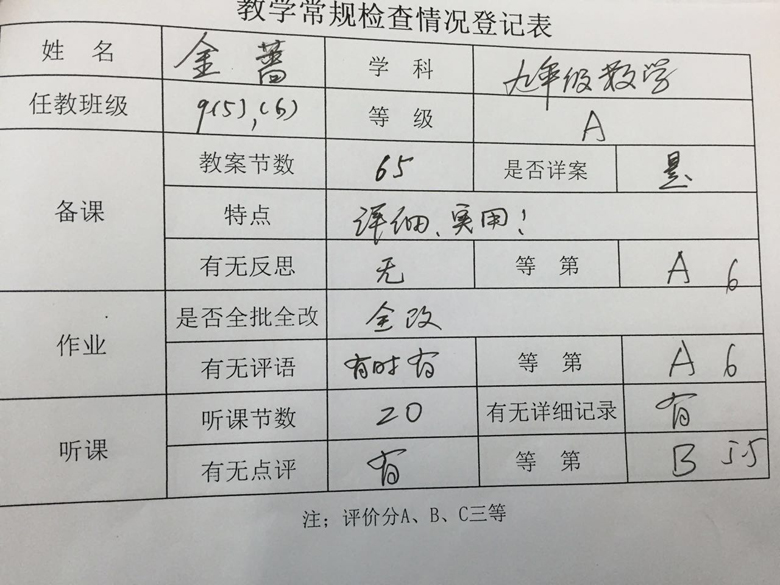 教学常规检查情况登记表
姓 名 金蔷 学 科 九年级数学
任教班级 9(5),(6) 等 级 A
备课 教案节数 65 是否详案 是
特点 详细、实用!
有无反思 无 等 第 A 6
作业 是否全批全改 全改
有无评语 有时有 等 第 A 6
听课 听课节数 20 有无详细记录 有
有无点评 有 等 第 B 5.5
注;评价分A、B、C三等